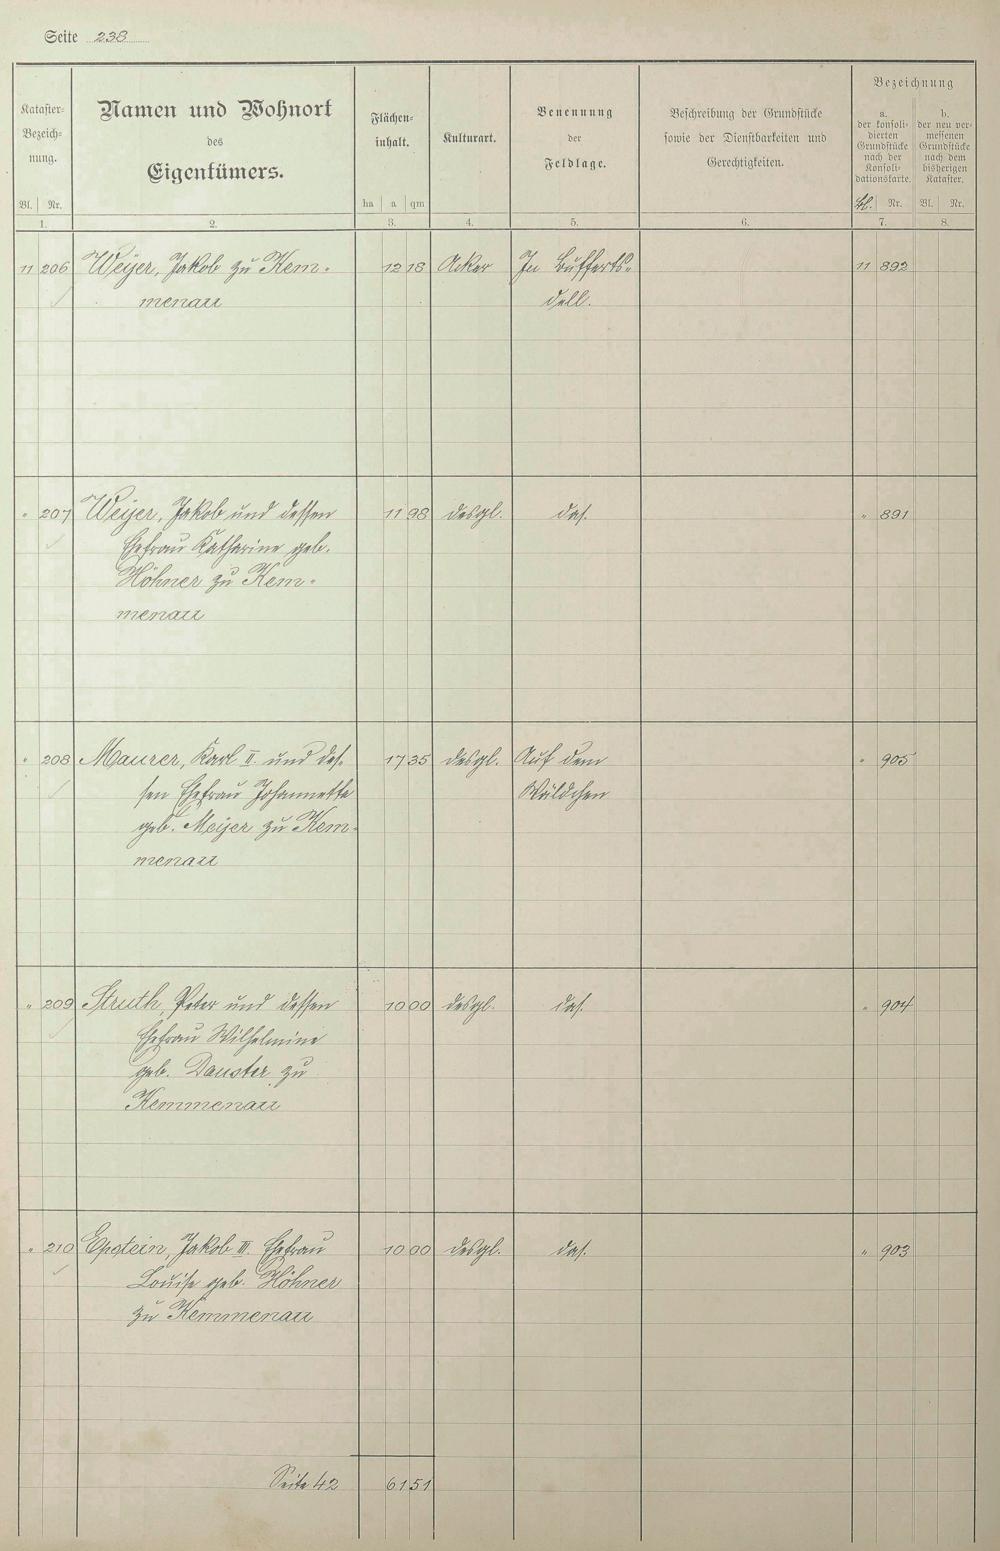 Seite 238
Kataster-
Bezeich-
nung.
Bl. Nr.
1.
Namen und Wohnort
des
Eigentümers.
2.
Flächen-
inhalt.
ha a qm
3.
Kulturart.
4.
Benennung
der
Feldlage.
5.
Beschreibung der Grundstücke
sowie der Dienstbarkeiten und
Gerechtigkeiten.
6.
Bezeichnung
a.
der konsoli-
dierten
Grundstücke
nach der
Konsoli-
dationskarte.
Bl. Nr.
7.
b.
der neu ver-
messenen
Grundstücke
nach dem
bisherigen
Kataster.
Bl. Nr.
8.
11 206 Weyer, Jakob zu Kem- 12 18 Acker In Bufferts- 11 892
menau dell.
" 207 Weyer, Jakob und dessen 11 98 desgl. das. " 891
Ehefrau Katharine geb.
Höhner zu Kem-
menau
" 208 Maurer, Karl II. und des- 17 35 desgl. Auf dem " 905
sen Ehefrau Johannette Wäldchen
geb. Meyer zu Kem-
menau
" 209 Struth, Peter und dessen 10 00 desgl. das. " 904
Ehefrau Wilhelmine
geb. Dauster zu
Kemmenau
" 210 Epstein, Jakob III. Ehefrau 10 00 desgl. das. " 903
Louise geb. Höhner
zu Kemmenau
Seite 42 61 51